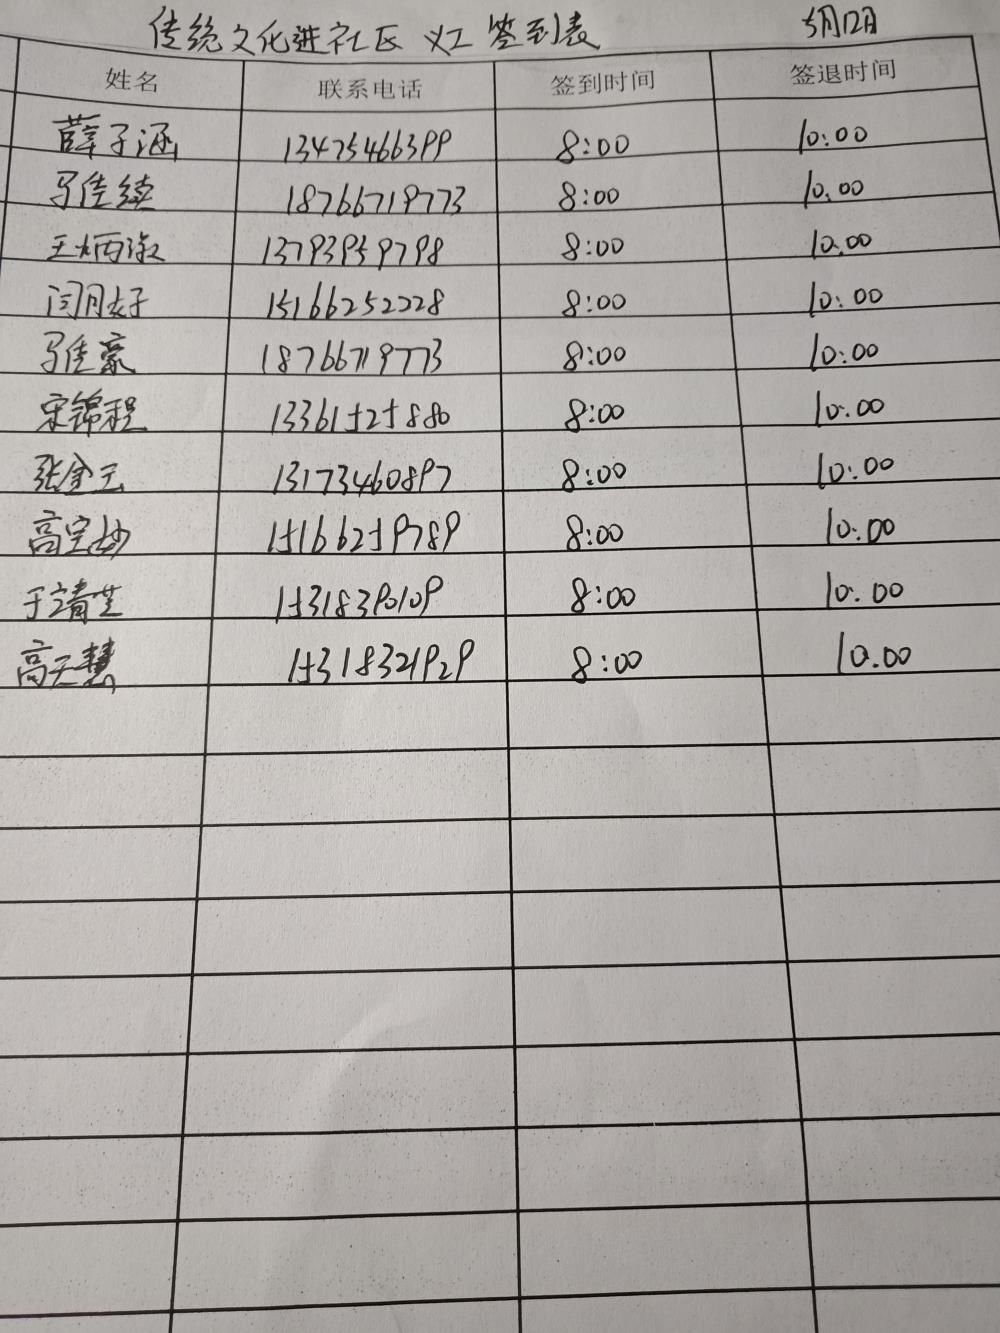 传统文化进社区 义工 签到表 5月12日
姓名 联系电话 签到时间 签退时间
薛子涵 13475466399 8:00 10:00
马佳续 18766719773 8:00 10.00
王炳淑 13793959798 8:00 10.00
闫月好 15166252228 8:00 10:00
马佳豪 18766719773 8:00 10:00
宋锦程 13361525880 8:00 10.00
张金玉 13173460897 8:00 10:00
高宝妙 15166259789 8:00 10:00
于靖芝 15318390109 8:00 10.00
高天慧 15318321929 8:00 10.00